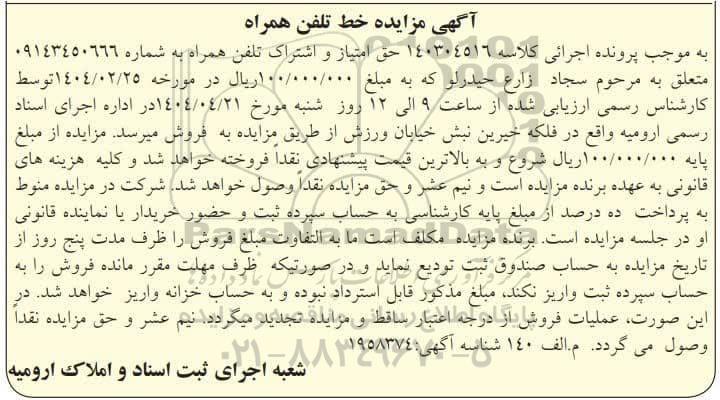 آگهی مزایده خط تلفن همراه
به موجب پرونده اجرائی کلاسه ۱۴۰۳۰۴۵۱۶ حق امتیاز و اشتراک تلفن همراه به شماره ۰۹۱۴۳۴۵۰۶۶۶
متعلق به مرحوم سجاد زارع حیدرلو که به مبلغ ۱۰۰/۰۰۰/۰۰۰ریال در مورخه ۱۴۰۴/۰۲/۲۵توسط
کارشناس رسمی ارزیابی شده از ساعت ۹ الی ۱۲ روز شنبه مورخ ۱۴۰۴/۰۴/۲۱در اداره اجرای اسناد
رسمی ارومیه واقع در فلکه خیرین نبش خیابان ورزش از طریق مزایده به فروش میرسد. مزایده از مبلغ
پایه ۱۰۰/۰۰۰/۰۰۰ریال شروع و به بالاترین قیمت پیشنهادی نقداً فروخته خواهد شد و کلیه هزینه های
قانونی به عهده برنده مزایده است و نیم عشر و حق مزایده نقداً وصول خواهد شد. شرکت در مزایده منوط
به پرداخت ده درصد از مبلغ پایه کارشناسی به حساب سپرده ثبت و حضور خریدار یا نماینده قانونی
او در جلسه مزایده است. برنده مزایده مکلف است ما به التفاوت مبلغ فروش را ظرف مدت پنج روز از
تاریخ مزایده به حساب صندوق ثبت تودیع نماید و در صورتیکه ظرف مهلت مقرر مانده فروش را به
حساب سپرده ثبت واریز نکند، مبلغ مذکور قابل استرداد نبوده و به حساب خزانه واریز خواهد شد. در
این صورت، عملیات فروش از درجه اعتبار ساقط و مزایده تجدید میگردد. نیم عشر و حق مزایده نقداً
وصول می گردد. م.الف ۱۴۰ شناسه آگهی:۱۹۵۸۳۷۴
شعبه اجرای ثبت اسناد و املاک ارومیه
ParsNamadData
پایگاه اطلاع رسانی مناقصه و مزایده
۰۲۱-۸۸۳۴۹۶۷۰-۵